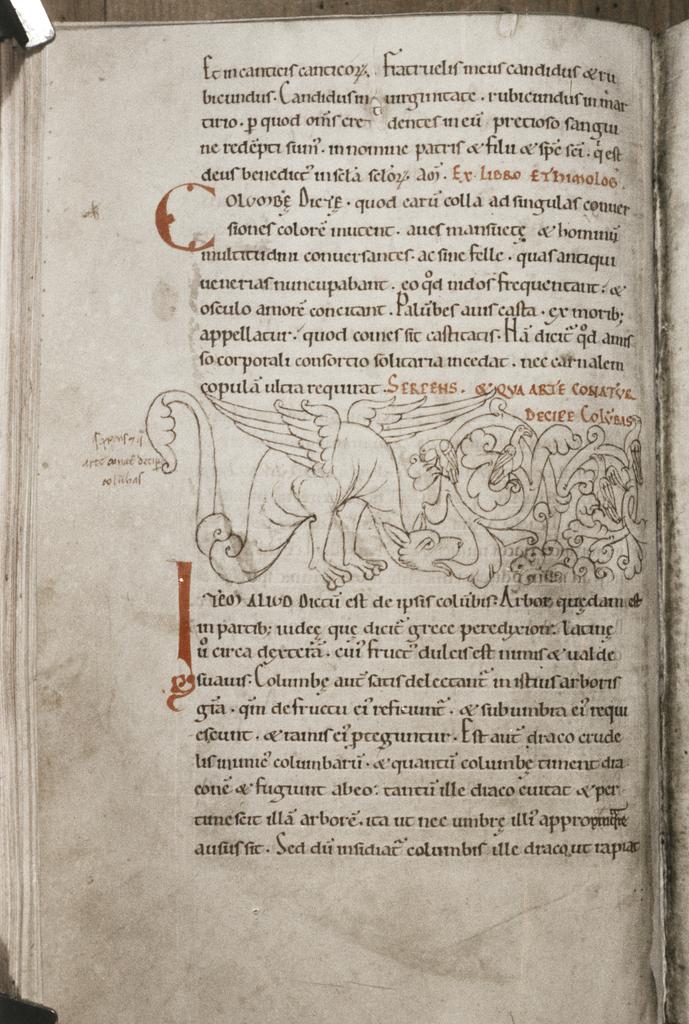 Et in canticis canticoꝝ. Fratruelis meus candidus & ru
bicundus. Candidus in uirginitate. rubicundus in mar
tirio. ꝑ quod om̅s cre dentes in eu̅ precioso sangui
ne rede̅pti sun̅. in nomine patris & filii & sp̅s sc̅i. q̇ est
deus benedict᾽ in sc̅la sc̅loꝝ. am̅. Ex libro ethimolog̅.
Columbę Dictę. quod earu̅ colla ad singulas conuer
siones colore̅ mutent. aues mansuetę & hominu̅
multitudini conuersantes. ac sine felle. quas antiqui
uenerias nuncupabant. eo qd̅ nidos frequentant: &
osculo amore̅ concitant. Palu̅bes auis casta. ex morib;
appellatur. quod comes sit castitatis. Na̅ dicit᷑ qd̅ amis
so corporali consortio solitaria incedat. nec carnalem
copula̅ ultra requirat. Serpens. & qua arte conatur
decipe̅ Colu̅bas.
serpens
arte conat᷑ decipe̅
colu̅bas
Ite̅m aliud Dictu̅ est de ipsis colu̅bis: Arbor quędam est
in partib; indię quę dicit᷑ grece peredixion. latine
u̅ circa dextera̅. cui᾽ fruct᾽ dulcis est nimis & ualde
suauis. Columbę aut̅ satis delectant᷑ in istius arboris
gr̅a. qm̅ de fructu ei᾽ reficiunt᷑. & sub umbra ei᾽ requi
escunt. & ramis ei᾽ ꝓteguntur. Est aut̅ draco crude
lis inimic᾽ columbaru̅. & quantu̅ columbę timent dra
cone̅ & fugiunt ab eo: tantu̅ ille draco euitat & per
timescit illa̅ arbore̅. ita ut nec umbrę illi᾽ appropinquare
ausus sit. Sed du̅ insidiat᷑ columbis ille draco. ut rapiat